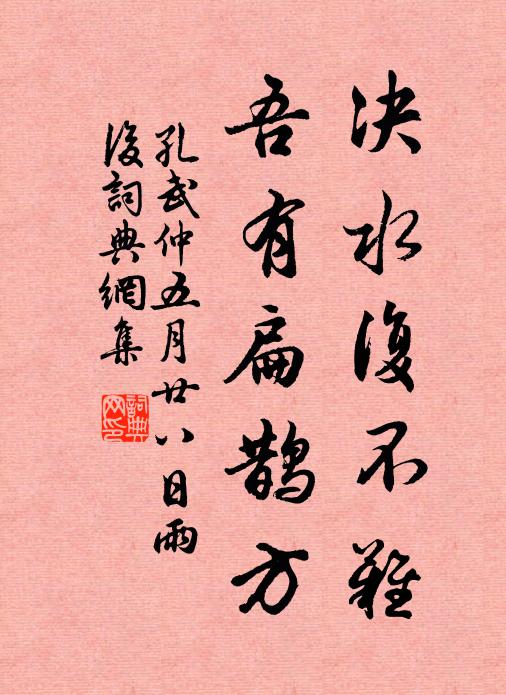 决水復不難
吾有扁鵲方
孔武仲五月廿八日雨
後詞典網集
詞典網印